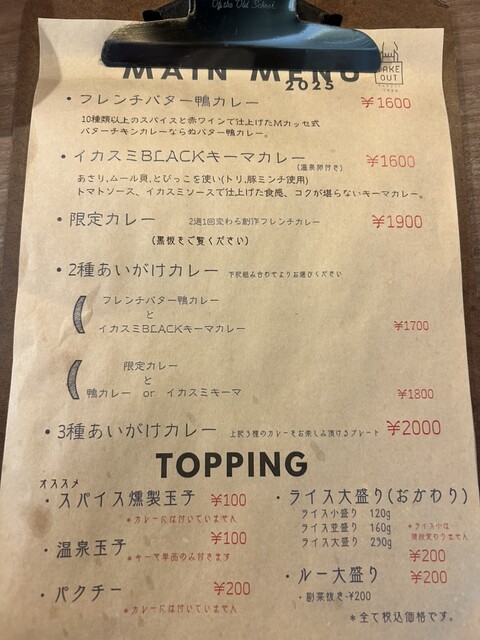 Of the Old School
MAIN MENU
2025
TAKE OUT
・フレンチバター鴨カレー ¥1600
10種類以上のスパイスと赤ワインで仕上げたMカッセ式
バターチキンカレーならぬバター鴨カレー。
・イカスミBLACKキーマカレー (温泉卵付き) ¥1600
あさり、ムール貝、とびっこを使い(トリ、豚ミンチ使用)
トマトソース、イカスミソースで仕上げた食感、コクが堪らないキーマカレー。
・限定カレー 2週1回変わる創作フレンチカレー ¥1900
(黒板をご覧ください)
・2種あいがけカレー 下記組み合わせよりお選びください
フレンチバター鴨カレー
と
イカスミBLACKキーマカレー ¥1700
限定カレー
と
鴨カレー or イカスミキーマ ¥1800
・3種あいがけカレー 上記3種のカレーをお楽しみ頂けるプレート ¥2000
TOPPING
オススメ
・スパイス燻製玉子 ¥100
*カレーには付いていません
・温泉玉子 ¥100
*キーマ単品のみ付きます
・パクチー ¥200
*カレーには付いていません
・ライス大盛り(おかわり)
ライス小盛り 120g
ライス並盛り 160g
ライス大盛り 230g
*ライス小は
値段変わりません
¥200
・ルー大盛り ¥200
・副菜抜き-¥200
*全て税込価格です。